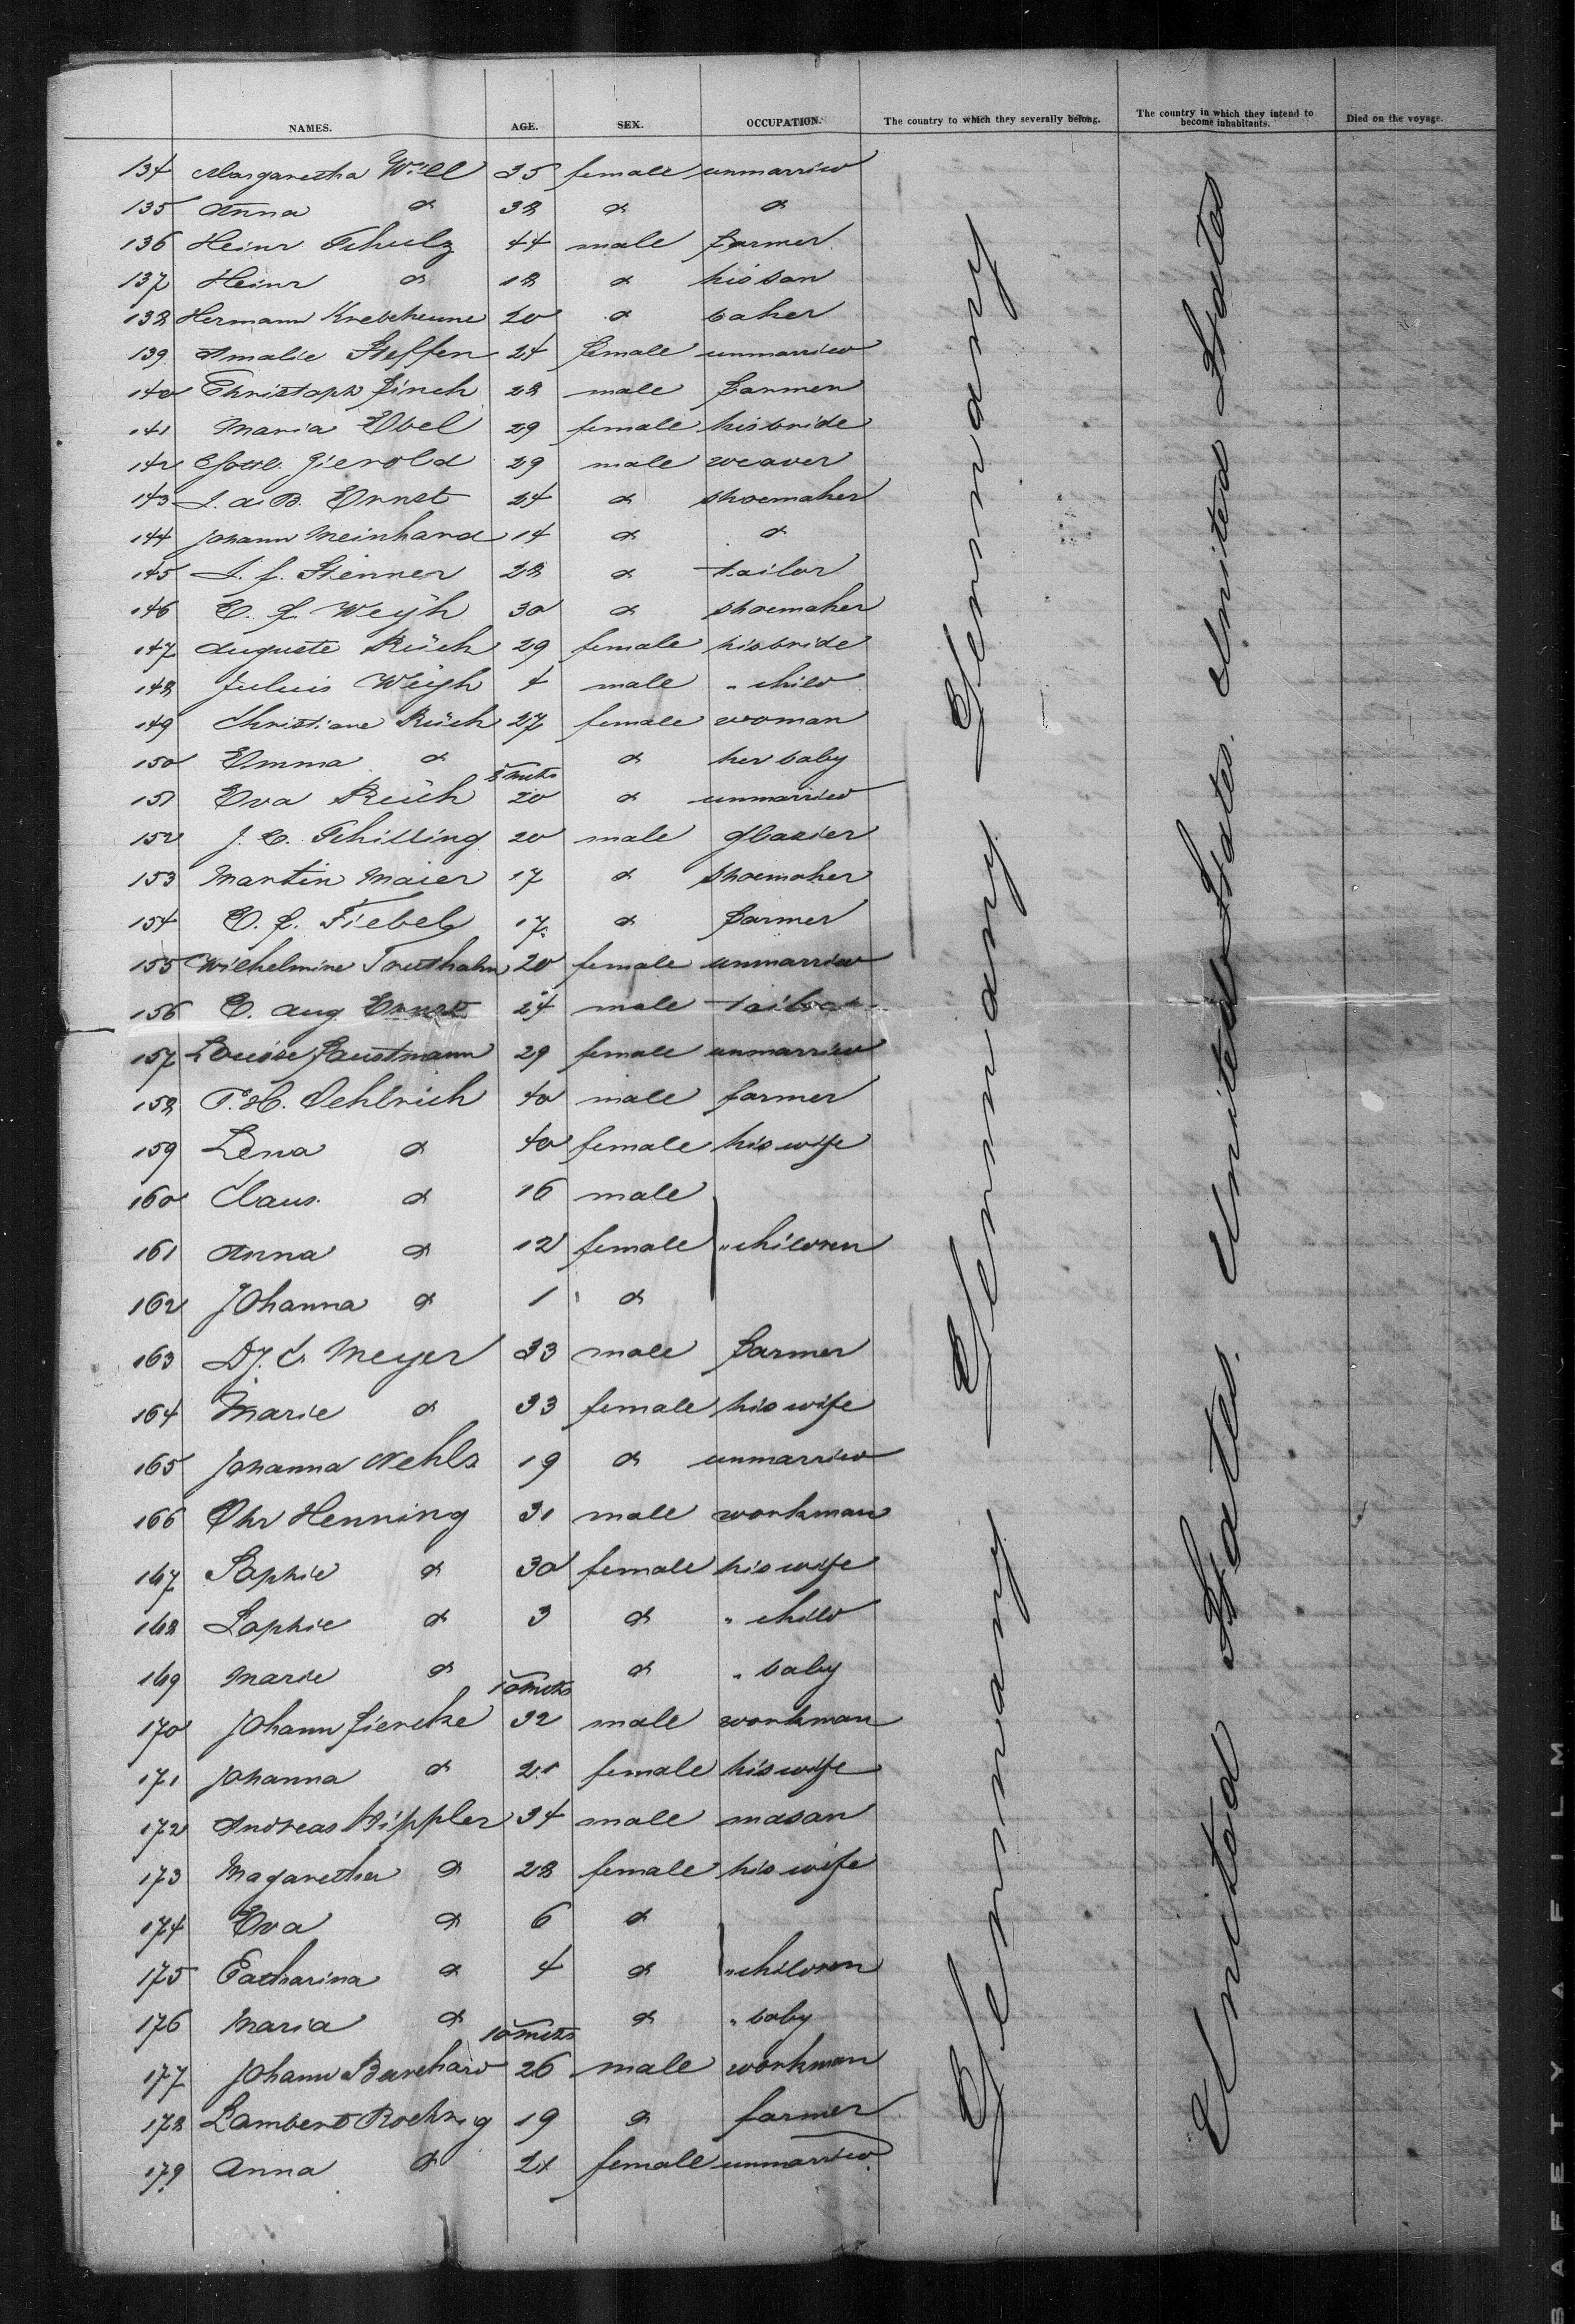 NAMES. AGE. SEX. OCCUPATION. The country to which they severally belong. The country in which they intend to become inhabitants. Died on the voyage.
134 Margaretha Will 25 female unmarried
135 Anna do 38 do do
136 Heinr Schulz 44 male farmer
137 Heinr do 18 do his son
138 Hermann 20 do baker
139 Amalie Steffen 24 female unmarried
140 Christoph Finck 28 male farmer
141 Maria Ebel 29 female his bride
142 Gierold 29 male weaver
143 J. A. B. Ernst 24 do shoemaker
144 Johann Meinhard 14 do do
145 J. F. Stenner 28 do tailor
146 E. F. Weijh 30 do shoemaker
147 Auguste Rüch 29 female his bride
148 Juluis Weijh 4 male " child
149 Christiane Rüch 27 female woman
150 Emma do 8 mths do her baby
151 Eva Rüch 20 do unmarried
152 J. C. Schilling 20 male glasier
153 Martin Maier 17 do shoemaker
154 E. F. Fiebel 17 do farmer
155 Wilhelmine Truthahn 20 female unmarried
156 E. Aug Ernst 24 male tailor
157 Louise Faustmann 29 female unmarried
158 P. H. Oehlrich 40 male farmer
159 Lena do 40 female his wife
160 Claus do 16 male
161 Anna do 12 female " children
162 Johanna do 1 do
163 D. J. C. Meyer 33 male farmer
164 Marie do 33 female his wife
165 Johanna Nehls 19 do unmarried
166 Chr Henning 31 male workman
167 Sophie do 30 female his wife
168 Sophie do 3 do " child
169 Marie do 10 mths do " baby
170 Johann Fiercke 32 male workman
171 Johanna do 21 female his wife
172 Andreas Hippler 34 male mason
173 Magaretha do 28 female his wife
174 Eva do 6 do
175 Catharina do 4 do " children
176 Maria do 10 mths do " baby
177 Johann Burchard 26 male workman
178 Lambert Roehrig 19 do farmer
179 Anna do 21 female unmarried
Germany Germany Germany
United States United States. United States
SAFETY A FILM